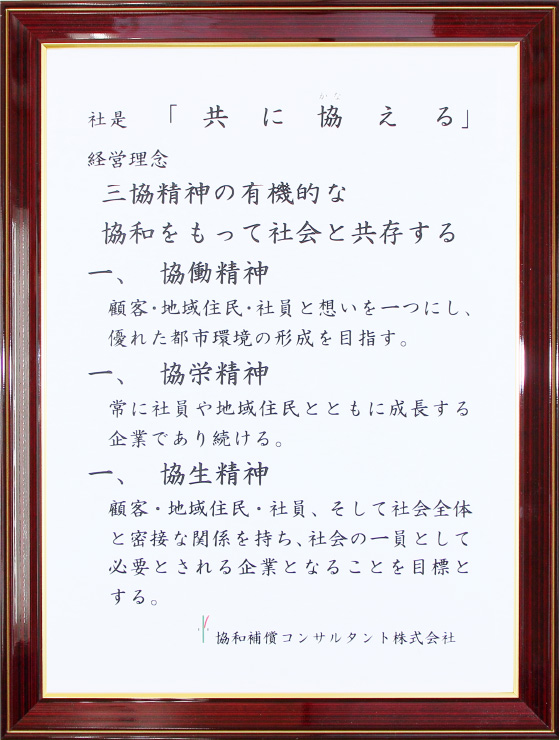 かな
社是 「共に協える」
経営理念
三協精神の有機的な
協和をもって社会と共存する
一、 協働精神
顧客・地域住民・社員と想いを一つにし、
優れた都市環境の形成を目指す。
一、 協栄精神
常に社員や地域住民とともに成長する
企業であり続ける。
一、 協生精神
顧客・地域住民・社員、そして社会全体
と密接な関係を持ち、社会の一員として
必要とされる企業となることを目標と
する。
協和補償コンサルタント株式会社